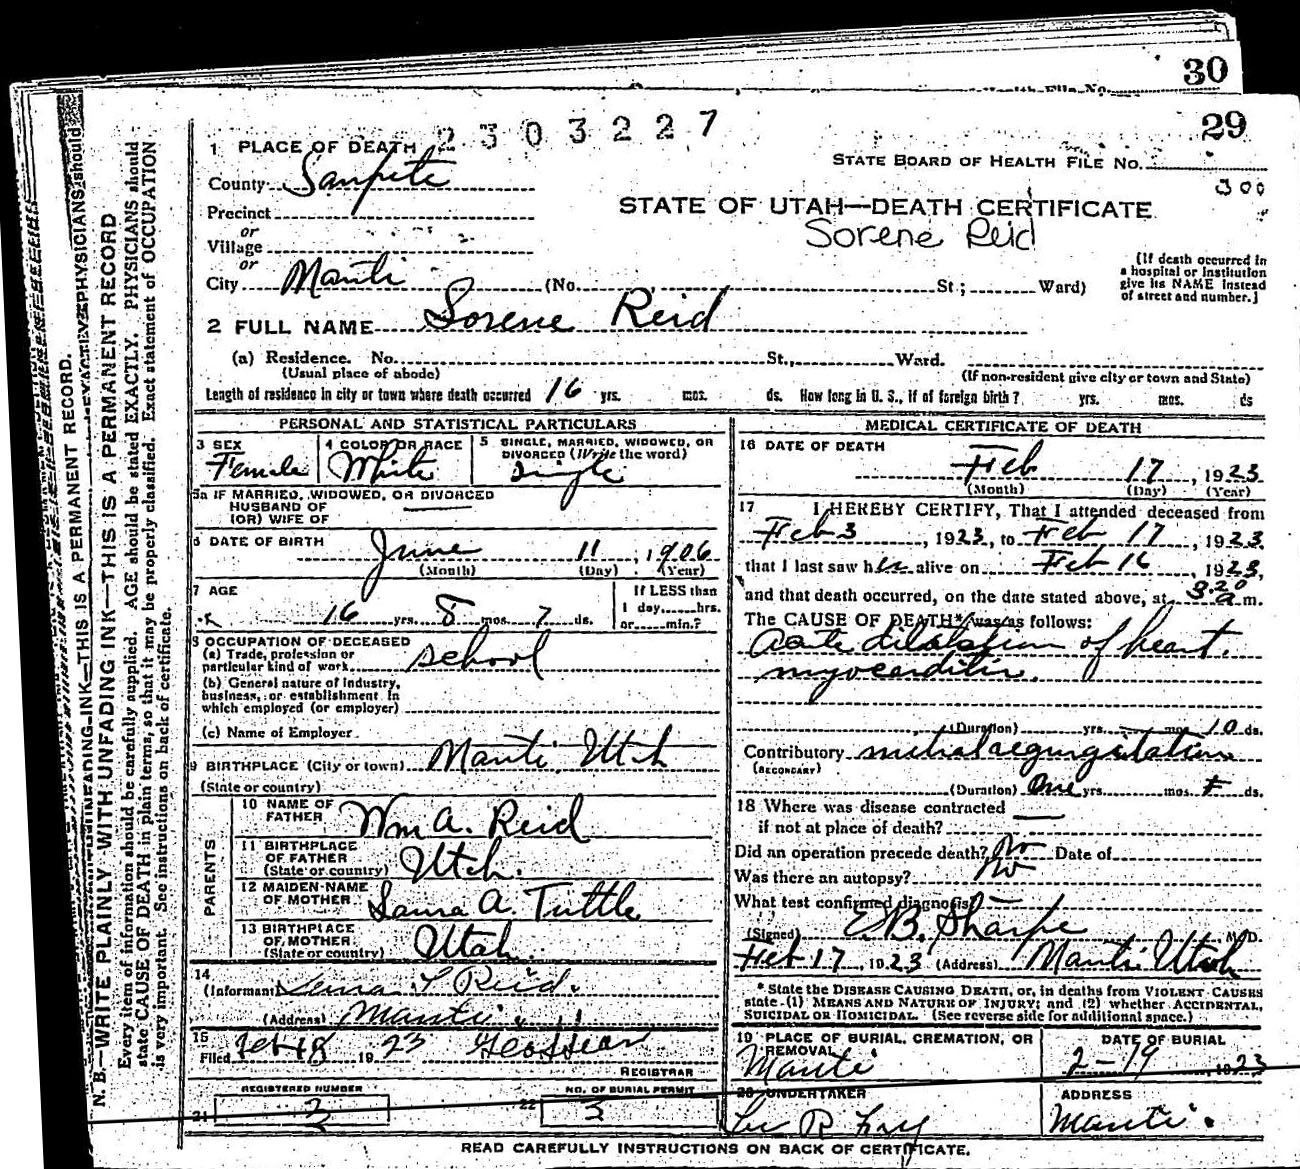 30
29
2303227
STATE BOARD OF HEALTH FILE NO.
300
1 PLACE OF DEATH
County Sanpete
Precinct
or
Village
or
City Manti (No. St; Ward)
STATE OF UTAH—DEATH CERTIFICATE
Sorene Reid
(If death occurred in
a hospital or institution
give its NAME instead
of street and number.)
2 FULL NAME Sorene Reid
(a) Residence. No. St., Ward.
(Usual place of abode) (If non-resident give city or town and State)
Length of residence in city or town where death occurred 16 yrs. mos. ds. How long in U. S., if of foreign birth? yrs. mos. ds
PERSONAL AND STATISTICAL PARTICULARS
3 SEX Female
4 COLOR OR RACE White
5 SINGLE, MARRIED, WIDOWED, OR
DIVORCED (Write the word)
Single
5a IF MARRIED, WIDOWED, OR DIVORCED
HUSBAND OF
(OR) WIFE OF
6 DATE OF BIRTH
June 11, 1906
(Month) (Day) (Year)
7 AGE
16 yrs. 8 mos. 7 ds.
If LESS than
1 day,......hrs.
or......min.?
8 OCCUPATION OF DECEASED
(a) Trade, profession or
particular kind of work School
(b) General nature of industry,
business, or establishment in
which employed (or employer)
(c) Name of Employer
9 BIRTHPLACE (City or town) Manti, Utah
(State or country)
PARENTS
10 NAME OF
FATHER Wm A. Reid
11 BIRTHPLACE
OF FATHER
(State or country) Utah.
12 MAIDEN NAME
OF MOTHER Laura A. Tuttle
13 BIRTHPLACE
OF MOTHER
(State or country) Utah.
14
(Informant) T Reid.
(Address) Manti
15
Filed Feb 18 1923
REGISTRAR
REGISTERED NUMBER
21 3
NO. OF BURIAL PERMIT
22 3
MEDICAL CERTIFICATE OF DEATH
16 DATE OF DEATH
Feb 17, 1923
(Month) (Day) (Year)
17 I HEREBY CERTIFY, That I attended deceased from
Feb 3, 1923, to Feb 17, 1923
that I last saw her alive on Feb 16, 1923,
and that death occurred, on the date stated above, at 3.20 a m.
The CAUSE OF DEATH* was as follows:
Acute dilatation of heart.
myocarditis.
(Duration) yrs. mos. 10 ds.
Contributory mitral regurgitation
(SECONDARY)
(Duration) One yrs. mos. ds.
18 Where was disease contracted
if not at place of death?
Did an operation precede death? No Date of
Was there an autopsy? No
What test confirmed diagnosis?
(Signed) E.B. Sharpe M.D.
Feb 17, 1923 (Address) Manti Utah
* State the DISEASE CAUSING DEATH, or, in deaths from VIOLENT CAUSES
state (1) MEANS AND NATURE OF INJURY; and (2) whether ACCIDENTAL,
SUICIDAL OR HOMICIDAL. (See reverse side for additional space.)
19 PLACE OF BURIAL, CREMATION, OR
REMOVAL
Manti
DATE OF BURIAL
2-19, 1923
20 UNDERTAKER
ADDRESS
Manti.
READ CAREFULLY INSTRUCTIONS ON BACK OF CERTIFICATE.
N. B.—WRITE PLAINLY WITH UNFADING INK—THIS IS A PERMANENT RECORD
Every item of information should be carefully supplied. AGE should be stated EXACTLY. PHYSICIANS should
state CAUSE OF DEATH in plain terms, so that it may be properly classified. Exact statement of OCCUPATION
is very important. See instructions on back of certificate.